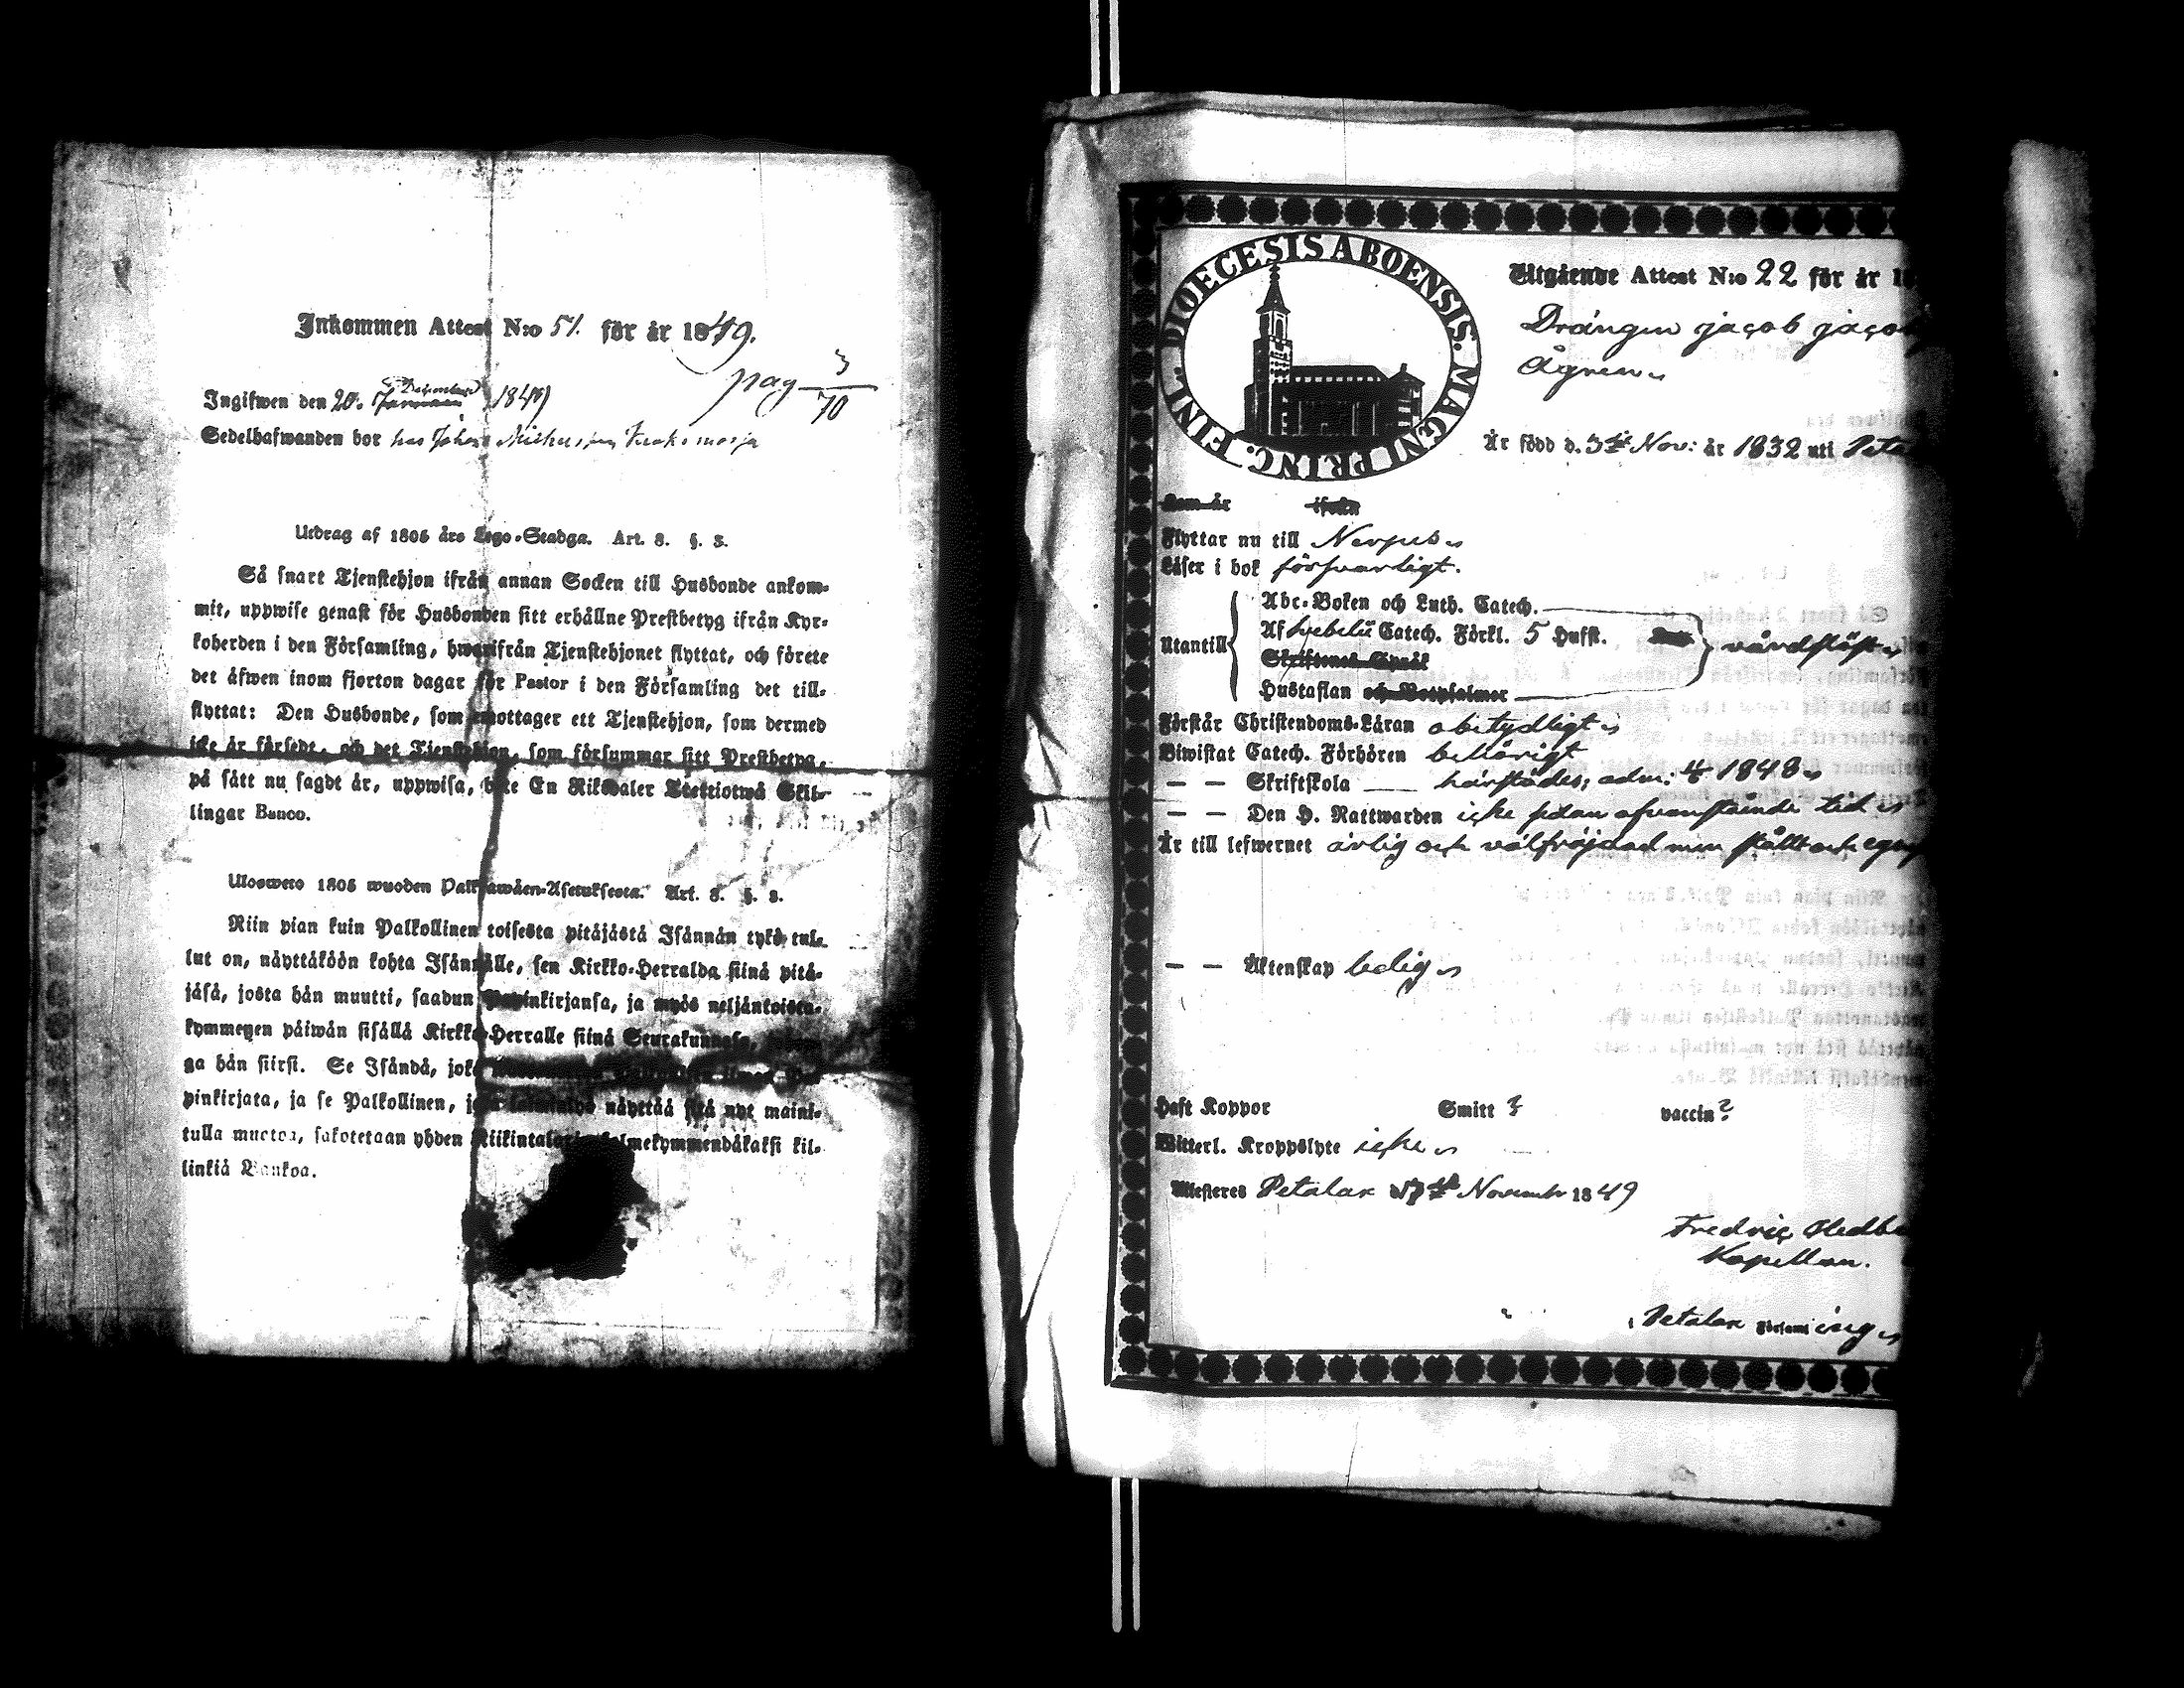 Inkommen Attest N:o 51. för år 1849.
pag 3/70
Ingifwen den 20. December 1849
Sedelhafwanden bor hos Johan
Utdrag af 1805 års Lego-Stadga. Art. 3. §. 3.
Så snart Tjenstehjon ifrån annan Socken till Husbonde ankom-
mit, uppwise genast för Husbonden sitt erhållne Prestbetyg ifrån Kyr-
koherden i den Församling, hwarifrån Tjenstehjonet flyttat, och förete
det äfwen inom fjorton dagar för Pastor i den Församling det till-
flyttat: Den Husbonde, som emottager ett Tjenstehjon, som dermed
icke är försedt, och det Tjenstehjon, som försummar sitt Prestbetyg,
på sätt nu sagdt är, uppwisa, böte En Riksdaler Trettiotwå Skil-
lingar Banco.
Ulosweto 1805 wuoden Palkkawäen-Asetuksesta. Art. 3. §. 3.
Niin pian kuin Palkollinen toisesta pitäjästä Isännän tykö tul-
lut on, näyttäköön kohta Isännälle, sen Kirkko-Herralda siinä pitä-
jäsä, josta hän muutti, saadun Papinkirjansa, ja myös neljäntoista-
kymmenen päiwän sisällä Kirkko-Herralle siinä Seurakunnasa,
ga hän siirsi. Se Isändä, joka
pinkirjata, ja se Palkollinen, näyttää sitä nyt maini-
tulla muotoa, sakotetaan yhden Riikintalarin kolmekymmendäkaksi kil-
linkiä Bankoa.
DIOECESIS ABOENSIS. MAGNI PRINC. FINL.
Utgående Attest N:o 22 för år 1
Drängen Jacob Jacob
Ågren
Är född d. 5te Nov: år 1832 uti Peta
Kom år ifrån
Flyttar nu till Nerpes
Läser i bok försvarligt.
Abc-Boken och Luth. Catech.
Utantill Af Svebelii Catech. Förkl. 5 Hufst. vårdslöst
Skriftenes Språk
Hustaflan och Botpsalmer
Förstår Christendoms-Läran obetydligt
Biwistat Catech. Förhören behörigt
— — Skriftskola härstädes; adm: 1848
— — Den H. Nattwarden icke sedan ofvanstående tid
Är till lefwernet ärlig och välfräjdad men ståltt och egen
— — Äktenskap ledig
Haft Koppor Smitt? vaccin?
Witterl. Kroppslyte icke
Attesteres Petalax November 1849
Fredric Hedb
Kapellan.
Petalax Församl ing